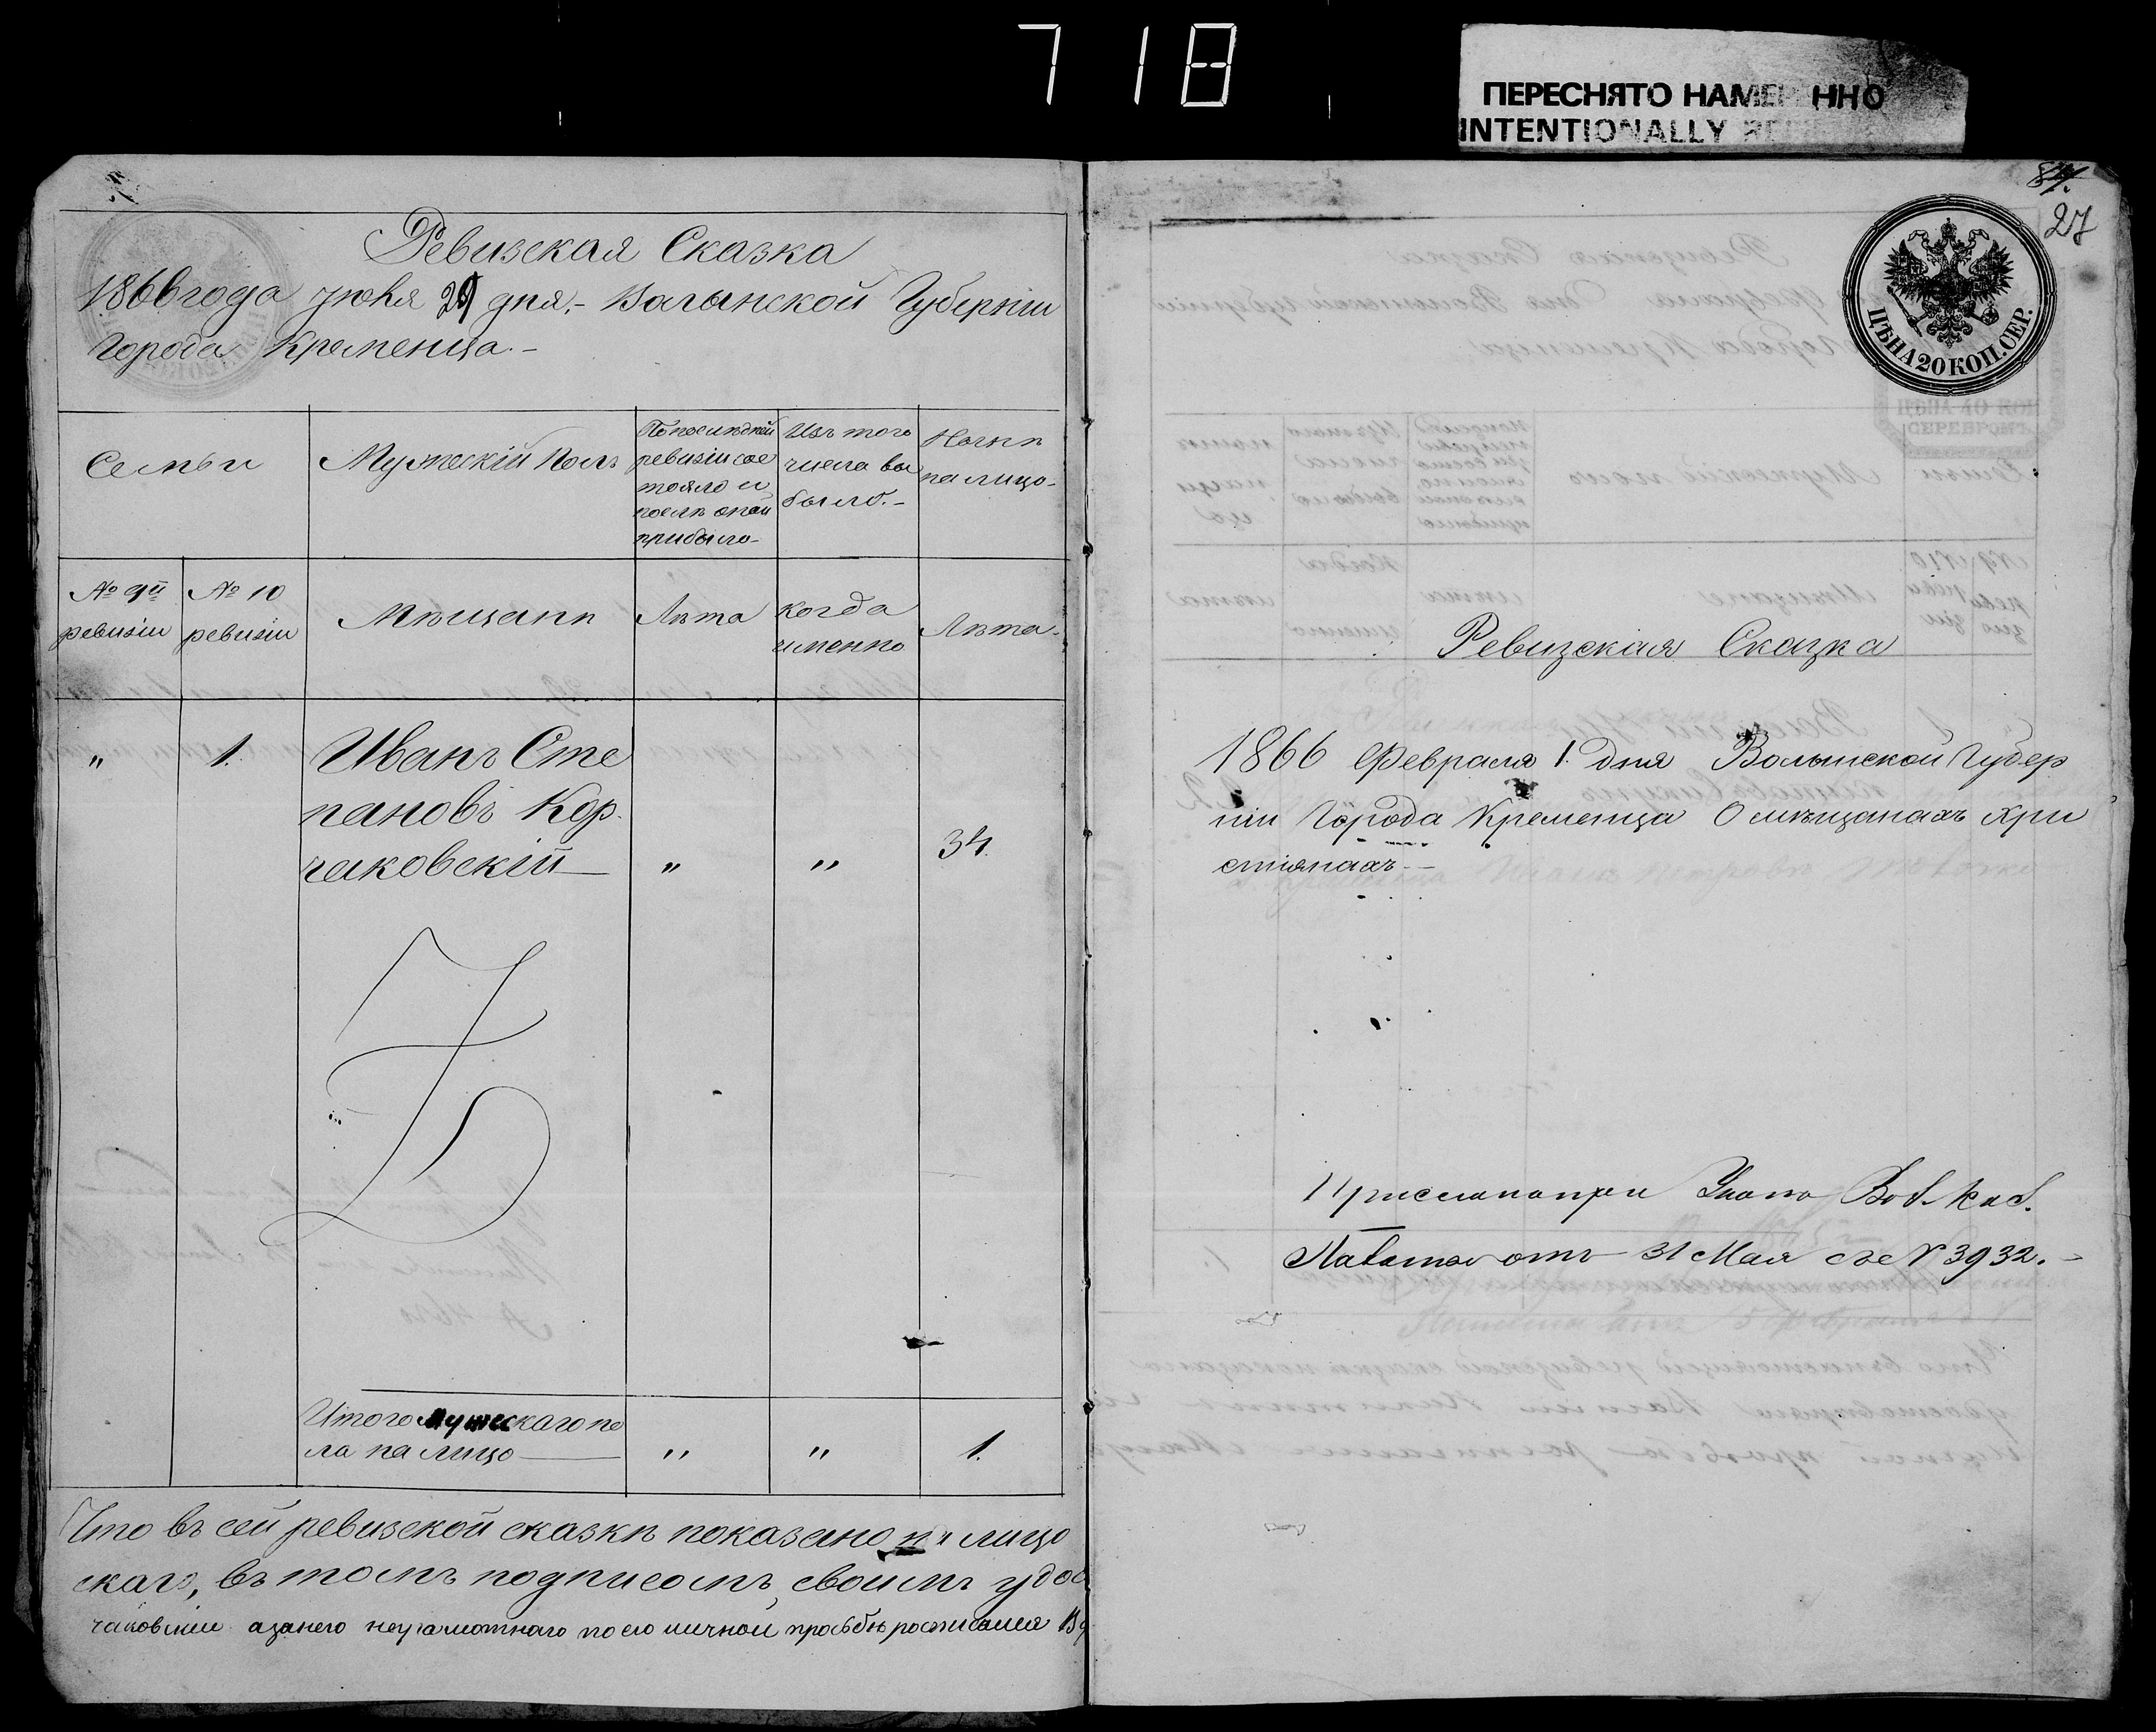 718
ПЕРЕСНЯТО НАМЕ ННО
INTENTIONALLY
Ревизская Сказка
1866 года дня,- Волынской Губерніи
Города Кременца.-
Семьи
Мужескій Полъ
По последней
ревизіи сос
тояло и
послѣ оной
прибыло-
Изъ того
числа вы
было.-
Нынѣ
на лицо-
№ 9й
ревизіи
№ 10
ревизіи
Мѣщанѣ
Лѣта
когда
именно
Лѣта-
" 1. Иванъ Сте
пановъ Кор
чаковскій " " 34.
Итого мужескаго по
ла на лицо " " 1.
Что въ сей ревизской сказкѣ показано на лицо
скаго, въ томъ подписомъ своимъ удос
чаковскій азанего неграмотнаго по его личной просьбѣ росписался
84.
27
ЦѢНА 20 КОП. СЕР.
Ревизская Сказка
1866 Февраля 1. дня Волынской Губер
ніи Города Кременца О мѣщанахъ хри
стіянахъ-
При Каз.
Палаты отъ 31 Мая за № 3932.-